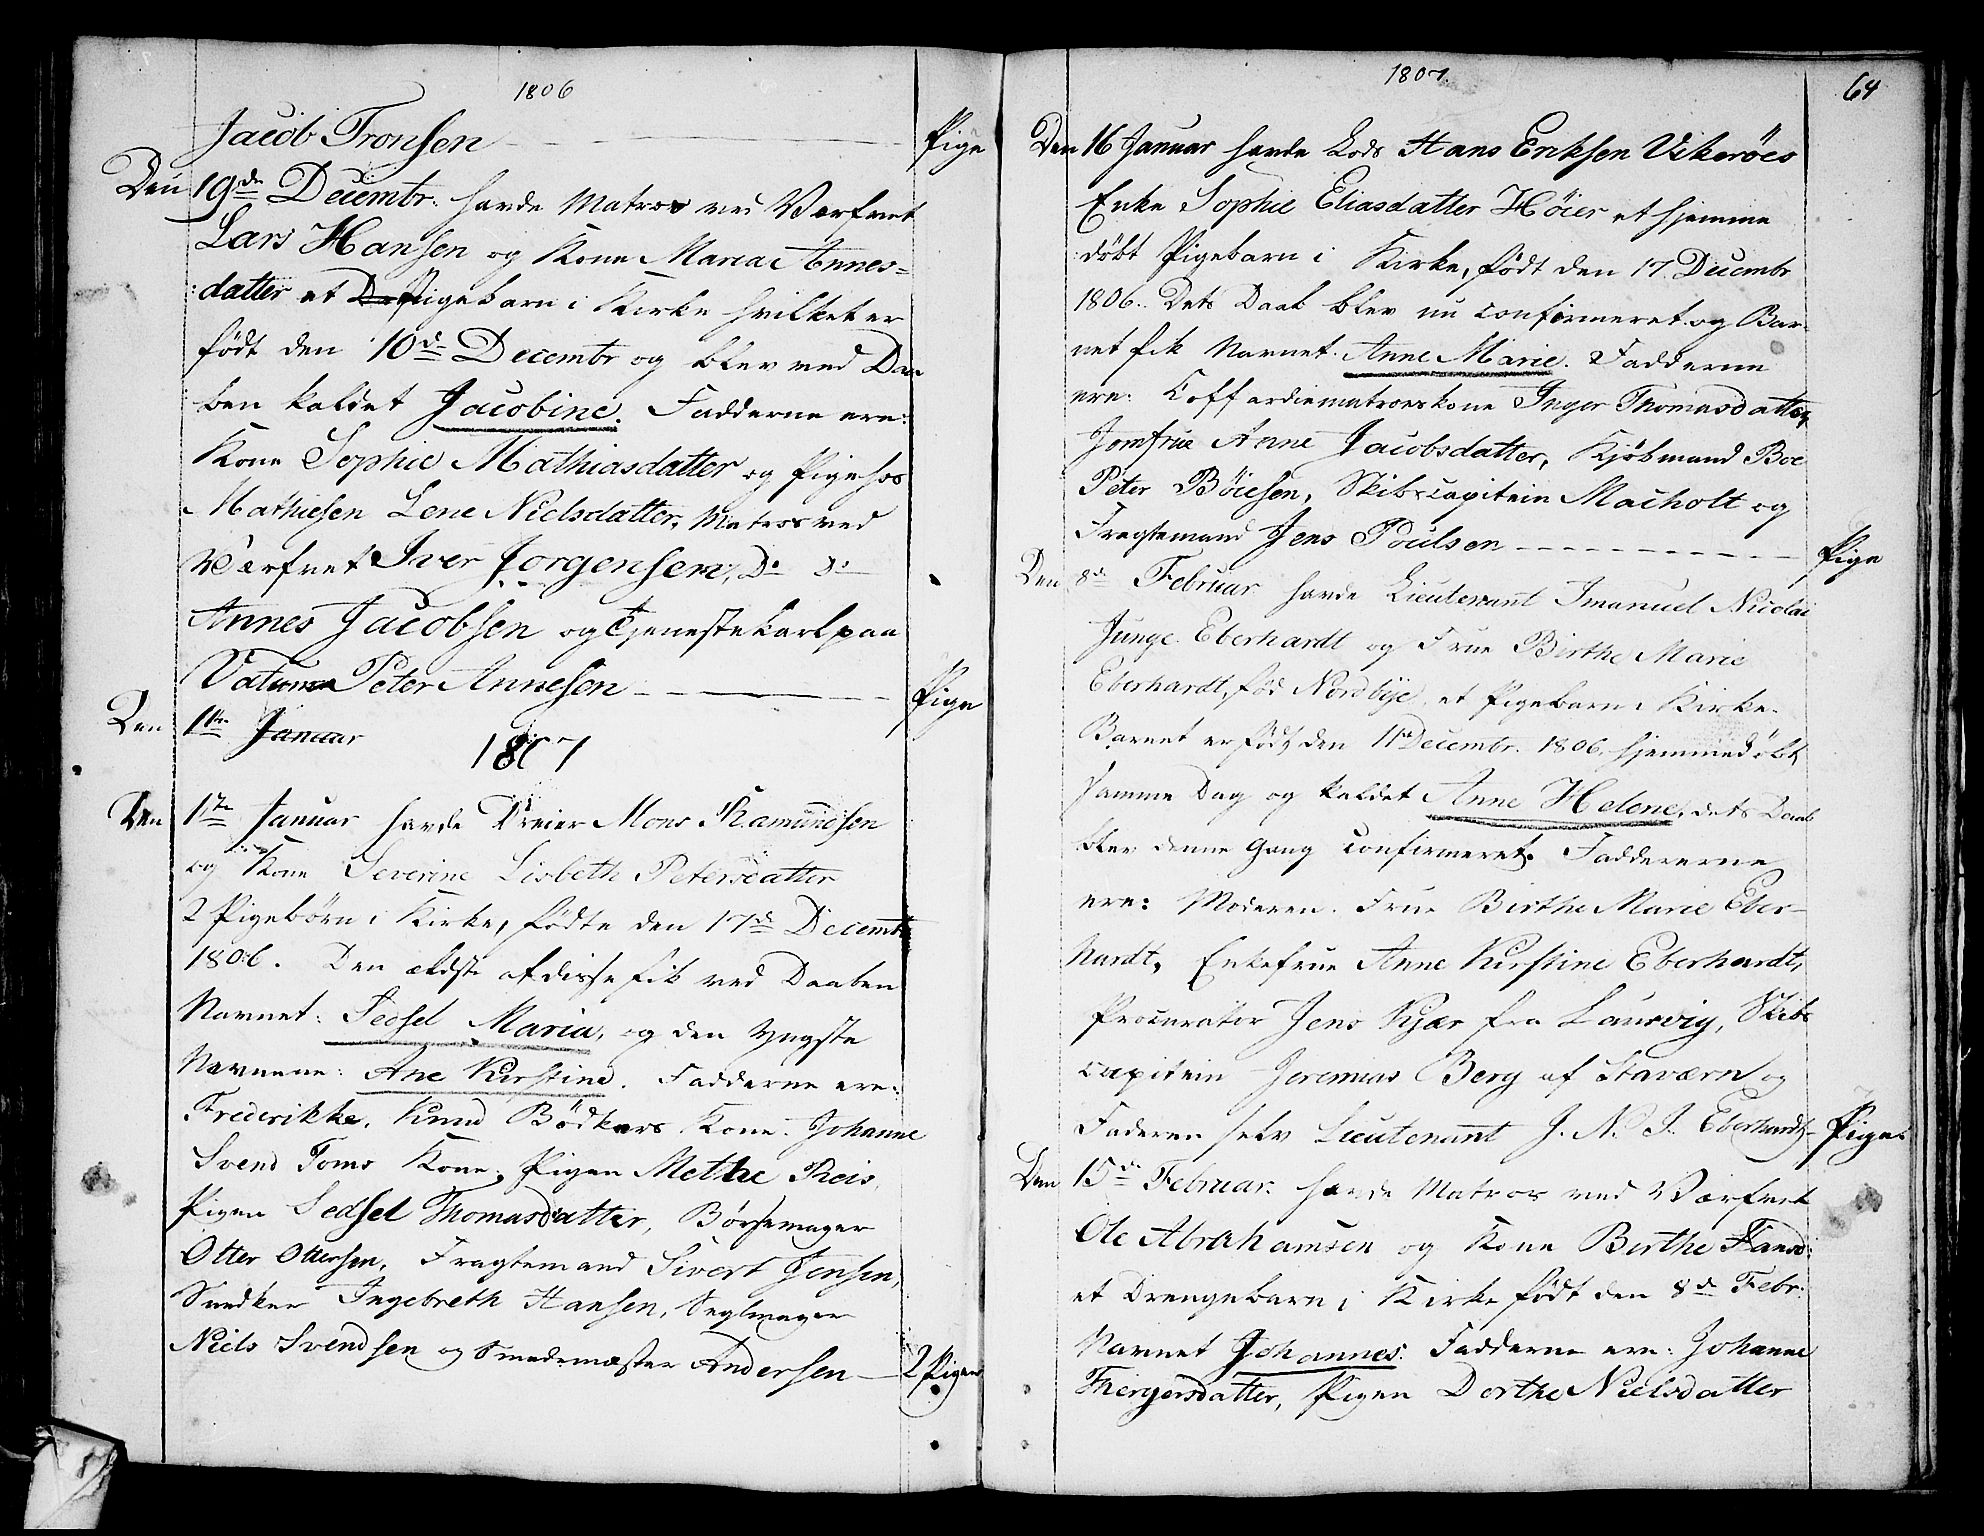 1806
Jacob Tronsen Pige
Den 19de Decembr: havde Matros ved Værfvet
Lars Hansen og Kone Maria Annes=
datter et Dr Pigebarn i Kirke hvilket er
födt den 10de Decembr og blev ved Daa
ben kaldet Jacobine. Fadderne ere:
Kone Sophie Mathiasdatter og Pige hos
Mathiesen Lene Nielsdatter, Matros ved
Værfvet Iver Jörgensen, Do Do
Annes Jacobsen og Tjenestekarl paa
Peter Annesen Pige
Den 1te Januar
1807
Den 1te Januar havde Dreier Mons Ramundsen
og Kone Severine Lisbeth Petersdatter
2 Pigebörn i Kirke, födte den 17de Decembr
1806. Den ældste af disse fik ved Daaben
Navnet: Sedsel Maria, og den yngste
Navnene: Ane Kirstine. Fadderne ere:
Frederikke, Knud Bödkers Kone. Johanne
Svend Toms Kone. Pigen Methe Reis,
Pigen Sedsel Thomasdatter, Börsemager
Otter Ottersen, Fragtemand Sivert Jensen,
Snedker Ingebreth Hansen, Seglmager
Niels Svendsen og Smedemæster Andersen 2 Piger
1807.
64
Den 16 Januar havde Lods Hans Eriksen Vikeröes
Enke Sophie Eliasdatter Höier et hjemme
döbt Pigebarn i Kirke, födt den 17 Decembr
1806. Dets Daab blev nu confirmeret og Bar
net fik Navnet. Anne Marie. Fadderne
ere: Coffardiematroeskone Inger Thomasdatter,
Jomfrue Anne Jacobsdatter, Kjöbmand Boe
Peter Böiesen, Skibscapitein Macholt og
Fragtemand Jens Poulsen Pige
Den 8de Februar havde Lieutenant Imanuel Nicolai
Junge Eberhardt og Frue Birthe Marie
Eberhardt, föd Nordbÿe, et Pigebarn i Kirke.
Barnet er födt den 11te Decembr. 1806, hjemmedöbt
samme Dag og kaldet Anne Helene, dets Daab
blev denne Gang confirmeret. Faddererne
ere: Moderen. Frue Birthe Marie Eber-
hardt, Enkefrue Anne Kirstine Eberhardt,
Procurator Jens Kjær fra Laurvig, Skibs
capitein Jeremias Berg af Staværn og
Faderen selv Lieutenant J. N. J. Eberhardt- Piger
Den 15de Februar. havde Matros ved Værfvet
Ole Abrahamsen og Kone Birthe Hansd:
et Drengebarn i Kirke födt den 8de Febr:
Navnet Johannes. Fadderne ere: Johanne
Thergersdatter, Pigen Dorthe Nielsdatter